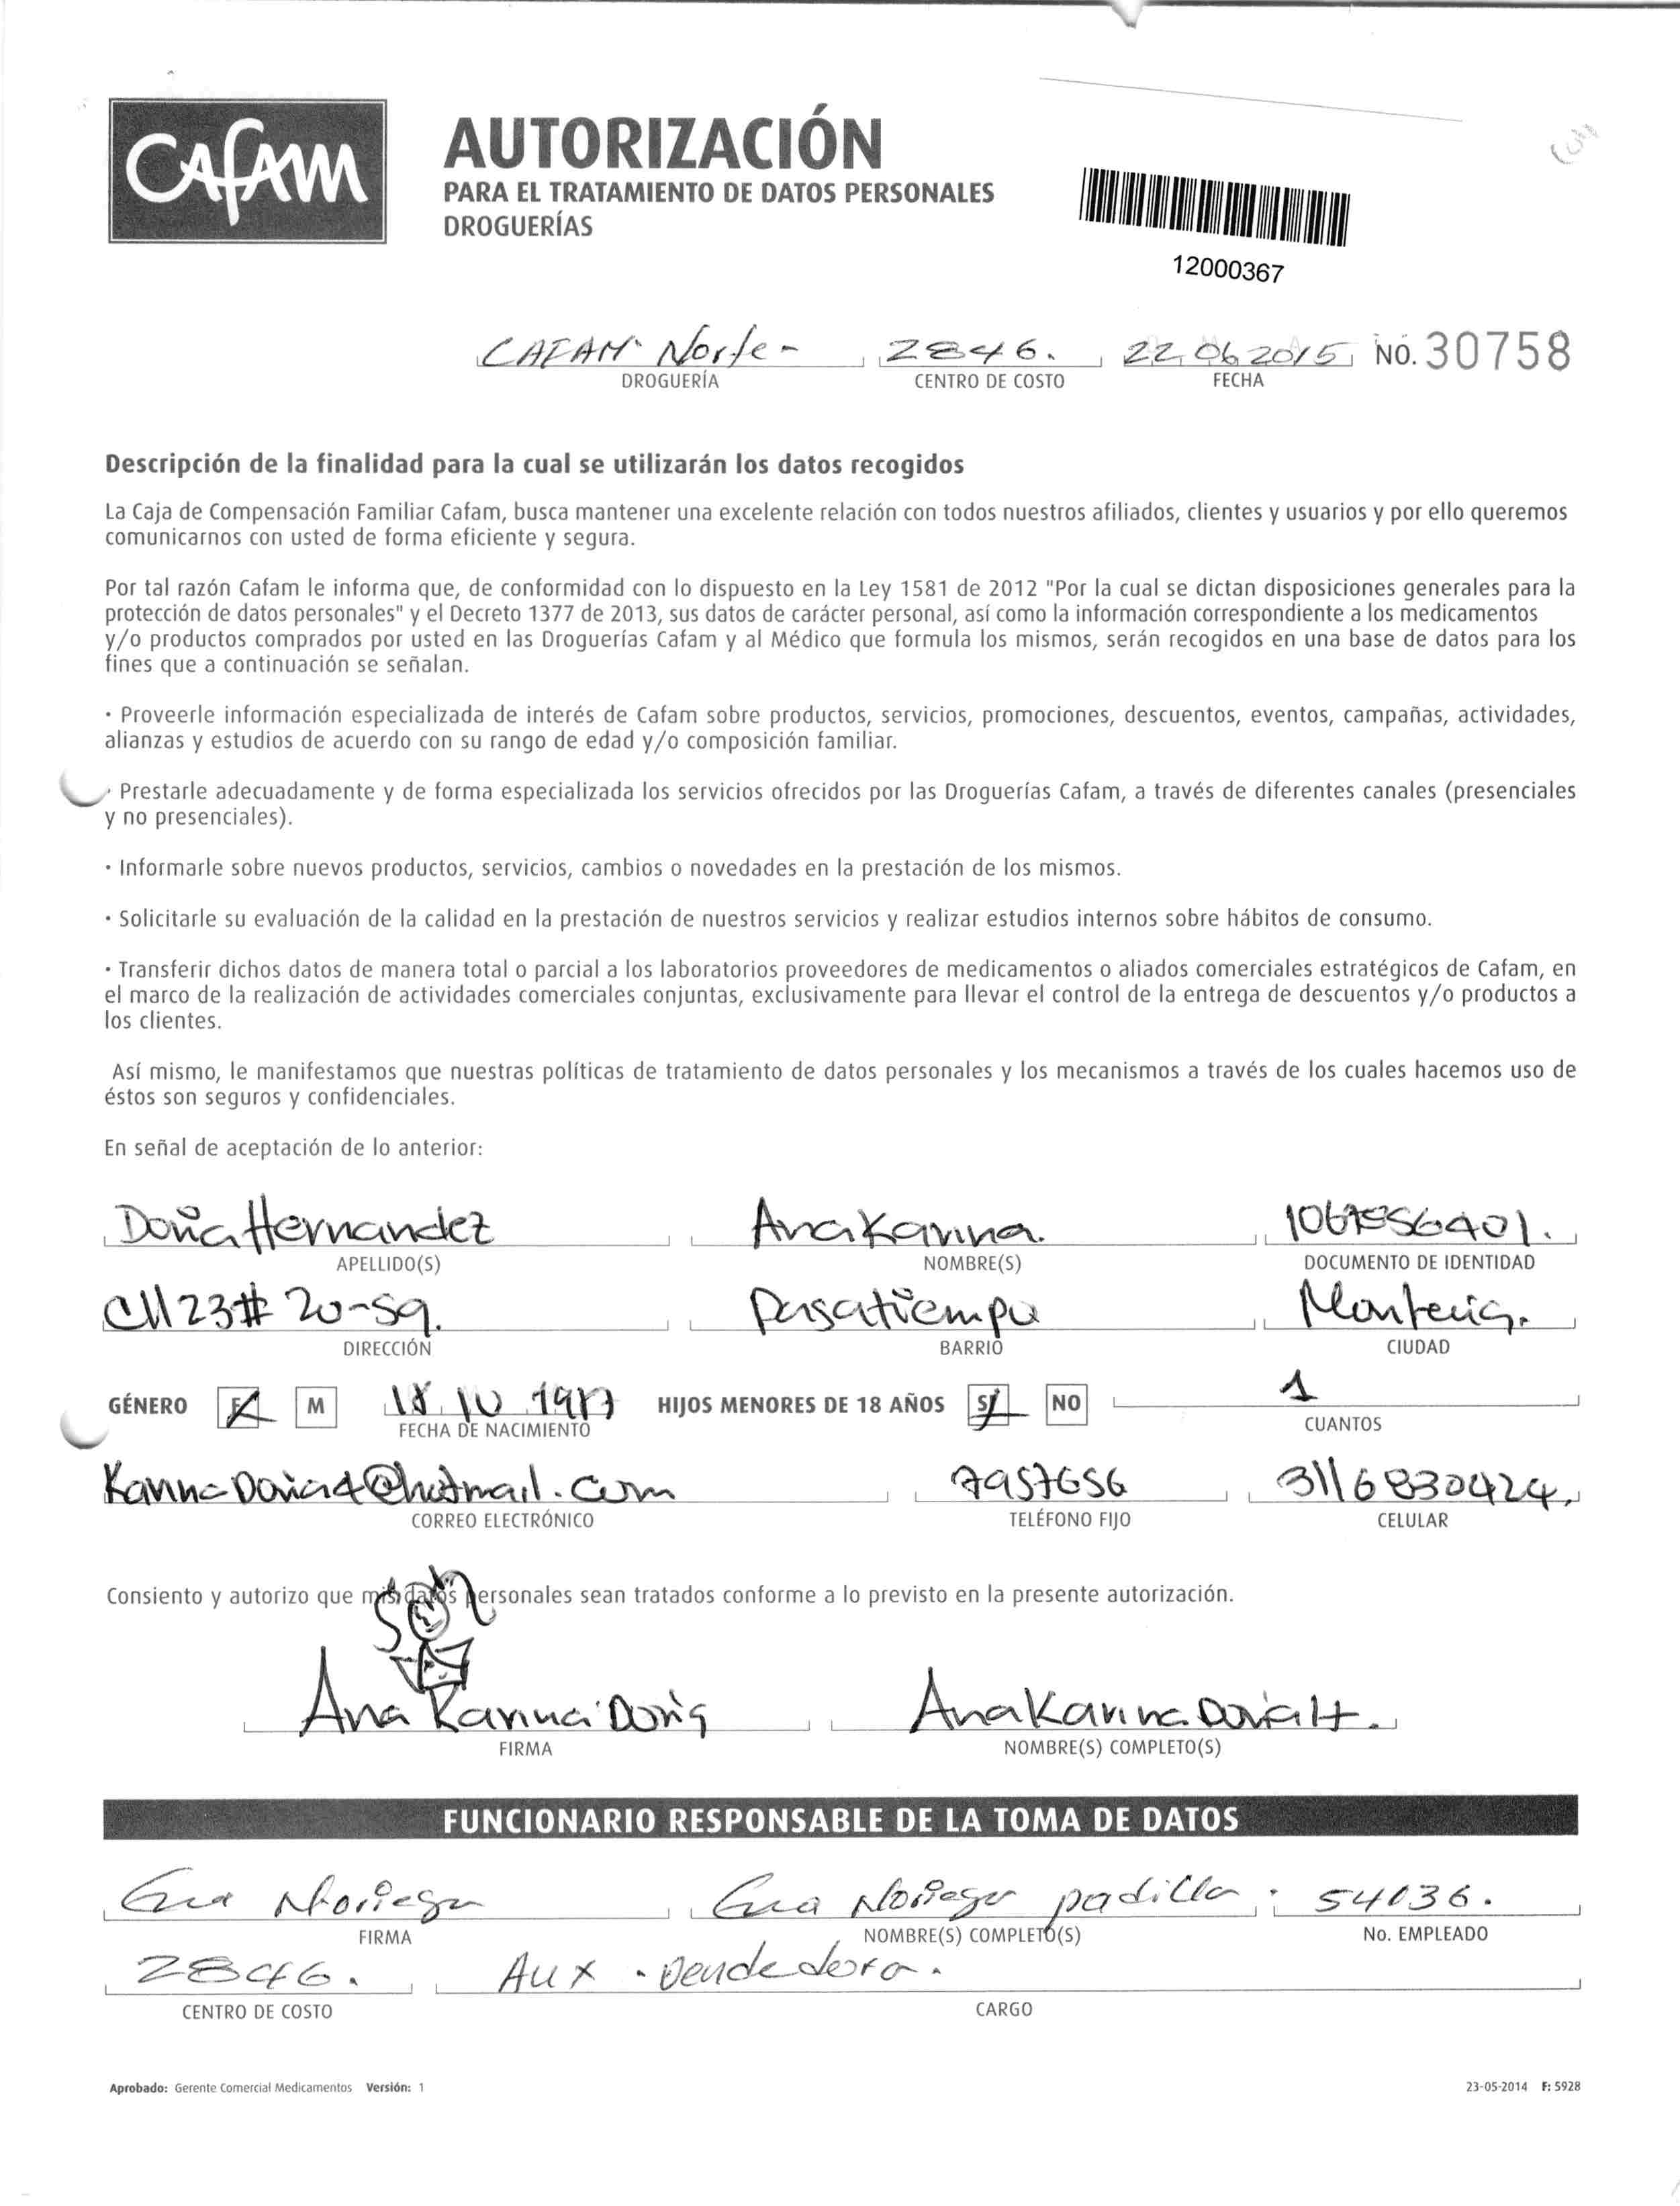 CAFAM
AUTORIZACIÓN
PARA EL TRATAMIENTO DE DATOS PERSONALES
DROGUERÍAS
12000367
CAFAM Norte - 2846. 22 06 2015 NO. 30758
DROGUERÍA CENTRO DE COSTO FECHA
Descripción de la finalidad para la cual se utilizarán los datos recogidos
La Caja de Compensación Familiar Cafam, busca mantener una excelente relación con todos nuestros afiliados, clientes y usuarios y por ello queremos
comunicarnos con usted de forma eficiente y segura.
Por tal razón Cafam le informa que, de conformidad con lo dispuesto en la Ley 1581 de 2012 "Por la cual se dictan disposiciones generales para la
protección de datos personales" y el Decreto 1377 de 2013, sus datos de carácter personal, así como la información correspondiente a los medicamentos
y/o productos comprados por usted en las Droguerías Cafam y al Médico que formula los mismos, serán recogidos en una base de datos para los
fines que a continuación se señalan.
• Proveerle información especializada de interés de Cafam sobre productos, servicios, promociones, descuentos, eventos, campañas, actividades,
alianzas y estudios de acuerdo con su rango de edad y/o composición familiar.
• Prestarle adecuadamente y de forma especializada los servicios ofrecidos por las Droguerías Cafam, a través de diferentes canales (presenciales
y no presenciales).
• Informarle sobre nuevos productos, servicios, cambios o novedades en la prestación de los mismos.
• Solicitarle su evaluación de la calidad en la prestación de nuestros servicios y realizar estudios internos sobre hábitos de consumo.
• Transferir dichos datos de manera total o parcial a los laboratorios proveedores de medicamentos o aliados comerciales estratégicos de Cafam, en
el marco de la realización de actividades comerciales conjuntas, exclusivamente para llevar el control de la entrega de descuentos y/o productos a
los clientes.
Así mismo, le manifestamos que nuestras políticas de tratamiento de datos personales y los mecanismos a través de los cuales hacemos uso de
éstos son seguros y confidenciales.
En señal de aceptación de lo anterior:
Doria Hernandez Ana Karina.
APELLIDO(S) NOMBRE(S) DOCUMENTO DE IDENTIDAD
Cll 23 # 20-59. Pasatiempo Monteria.
DIRECCIÓN BARRIO CIUDAD
GÉNERO F M 18 10 1987 HIJOS MENORES DE 18 AÑOS SÍ NO 1
FECHA DE NACIMIENTO CUANTOS
7957656 3116830424.
CORREO ELECTRÓNICO TELÉFONO FIJO CELULAR
Consiento y autorizo que mis datos personales sean tratados conforme a lo previsto en la presente autorización.
Ana Karina Doria Ana Karina Doria H.
FIRMA NOMBRE(S) COMPLETO(S)
FUNCIONARIO RESPONSABLE DE LA TOMA DE DATOS
Noriega Noriega padilla. 54136.
FIRMA NOMBRE(S) COMPLETO(S) No. EMPLEADO
2846. Aux. Vendedora.
CENTRO DE COSTO CARGO
Aprobado: Gerente Comercial Medicamentos Versión: 1 23-05-2014 F: 5928